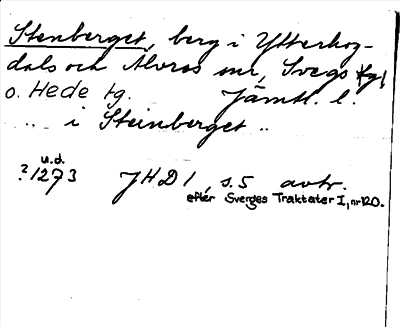 Stenberget, berg i Ytterhog-
dals och Älvros snr, Svegs tg
o. Hede tg. Jämtl. l.
.. .. i Steinberget ..
u.d.
? 1273 JHD 1, s. 5 avtr.
efter Sverges Traktater I, nr 120.